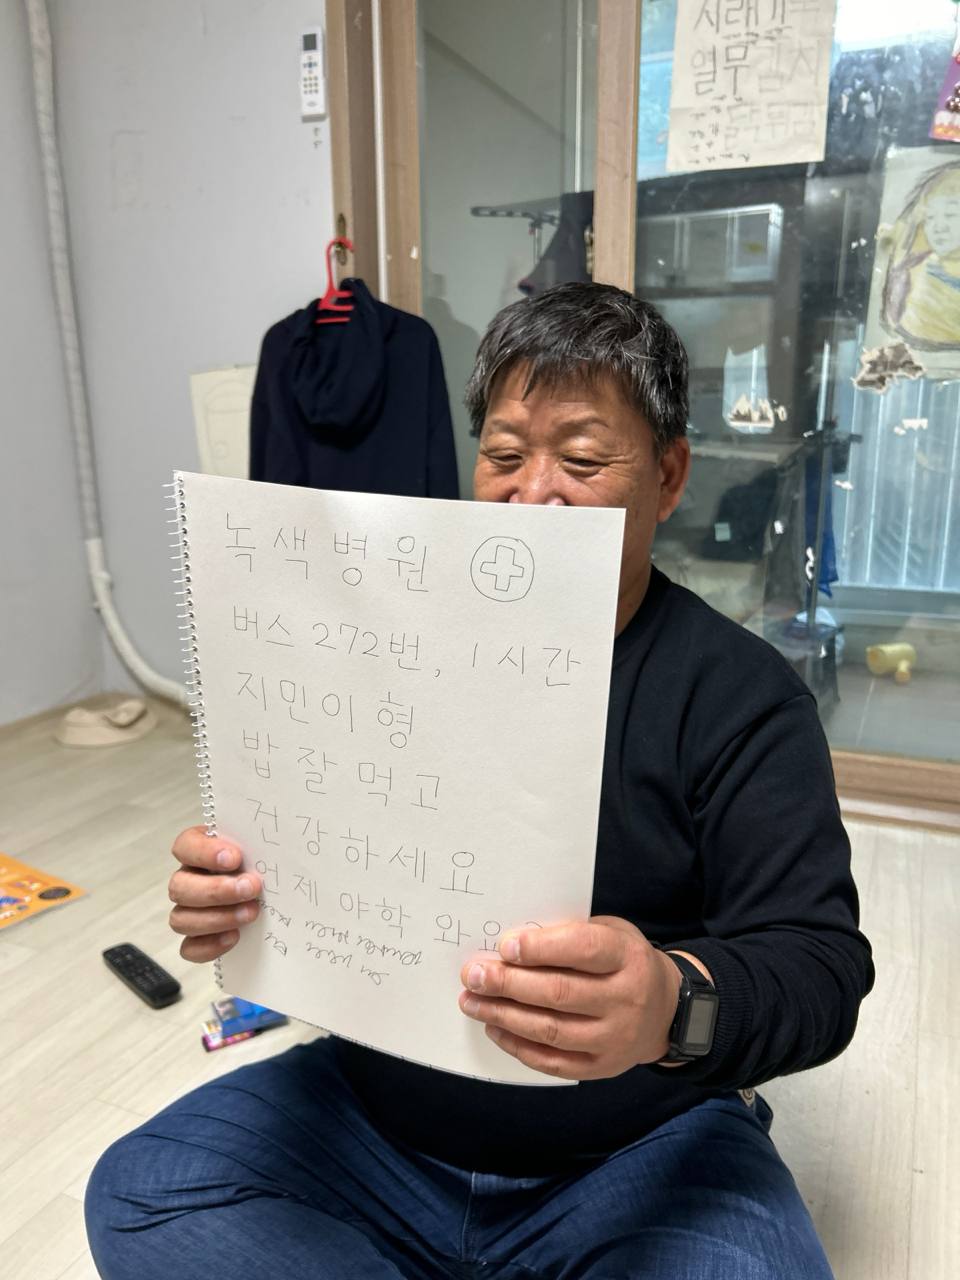 시래기국
열무김치
녹색병원
버스 272번, 1시간
지민이 형
밥 잘 먹고
건강하세요
언제 야학 와요?